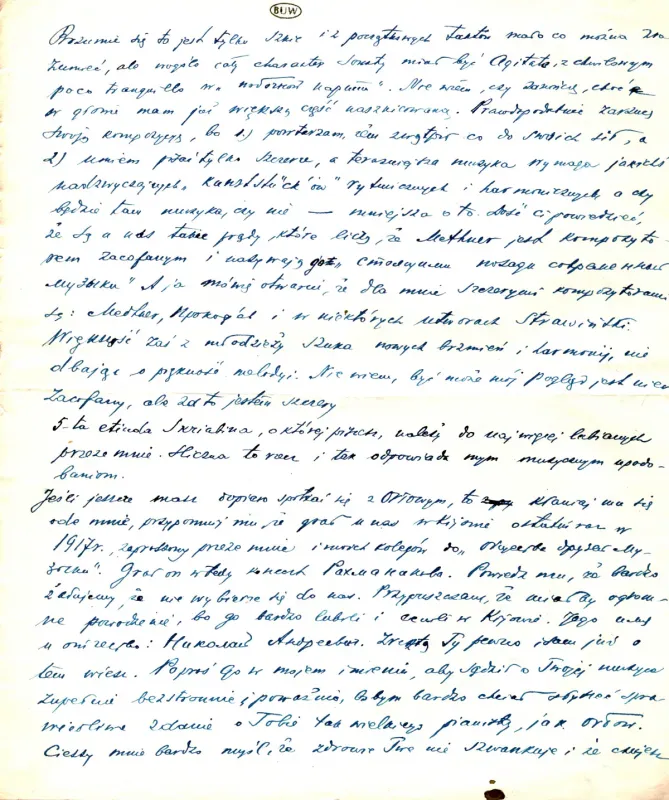 BUW
Rozumie się to jest tylko szkic i z początkowych taktów mało co można zro-
zumieć, ale wogóle cały charakter Sonaty miał być Agitato, z chwilowym
poco tranquillo Nie wiem, czy zakończę, choć
w głowie mam już większą część naszkicowaną. Prawdopodobnie zarzucę
swoją kompozycję, bo 1) powtarzam, żem zwątpił co do swoich sił, a
2) umiem pisać tylko szczerze, a teraźniejsza muzyka wymaga jakichś
nadzwyczajnych „Kunststück'ów" rytmicznych i harmonicznych, a czy
będzie tam muzyka, czy nie — mniejsza o to. Dość Ci powiedzieć,
że są u nas takie prądy, które liczą, że Methner jest kompozyto-
rem zacofanym i nazywają go „стоящим позади современной
музыки" A ja mówię otwarcie, że dla mnie szczerymi kompozytorami
są: Methner, Прокофьев i w niektórych utworach Strawiński.
Większość zaś z młodzieży szuka nowych brzmień i harmonij, nie
dbając o piękność melodyi. Nie wiem, być może mój pogląd jest
zacofany, ale zato jestem szczery
5-ta etiuda Skriabina, o której piszesz, należy do najwięcej lubianych
przeze mnie. Śliczna to rzecz i tak odpowiada mym muzycznym upodo-
baniom.
Jeśli jeszcze masz dopiero spotkać się z Orłowym, to kłaniaj mu się
ode mnie, przypomnij mu, że grał u nas w Kijowie ostatni raz w
1917 r., zaproszony przeze mnie i moich kolegów do „
Grał on wtedy koncert Рахманинова. Powiedz mu, że bardzo
żałujemy, że nie wybierze się do nas. Przypuszczam, że miałby ogrom-
ne powodzenie, bo go bardzo lubili i cenili w Kijowie. Jego imię
i : Николай Андреевич. Zresztą Ty pewno sam już o
tem wiesz. Poproś Go w mojem imieniu, aby sądził o Twojej muzyce
zupełnie bezstronnie i poważnie, bobym bardzo chciał usłyszeć spra-
wiedliwe zdanie o Tobie tak wielkiego pianisty, jak Orłow.
Cieszy mnie bardzo myśl, że zdrowie Twe nie szwankuje i że